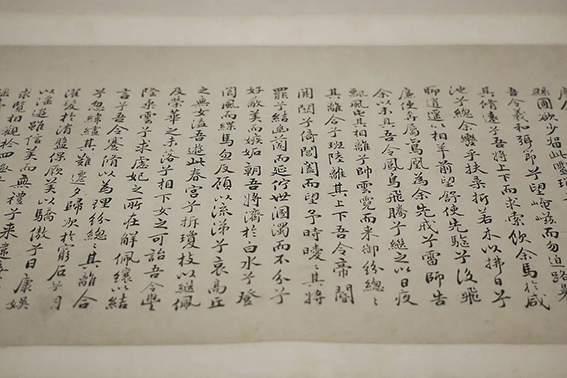 縣圃兮欲少留此靈瑣
吾令羲和弭節兮望崦嵫而勿迫路曼
其脩遠兮吾將上下而求索飲余馬於咸
池兮總余轡乎扶桑折若木以拂日兮
聊逍遙以相羊前望舒使先驅兮後飛
廉使奔屬鸞凰為余先戒兮雷師告
余以未具吾令鳳鳥飛騰兮繼之以日夜
飄風屯其相離兮帥雲霓而來御紛總〻
其離合兮班陸離其上下吾令帝閽
開關兮倚閶闔而望予時曖〻其將
罷兮結幽蘭而延佇世溷濁而不分兮
好蔽美而嫉妬朝吾將濟於白水兮登
閬風而緤馬忽反顧以流涕兮哀高丘
之無女溘吾遊此春宮兮折瓊枝以繼佩
及榮華之未落兮相下女之可詒吾令豐
隆乘雲兮求虙妃之所在解佩纕以結
言兮吾令蹇脩以為理紛總〻其離合
兮忽緯繣其難遷夕歸次於窮石兮朝
濯髮於洧盤保厥美以驕傲兮日康娛
以淫遊雖信美而無禮兮來違棄
求覽相觀於四極